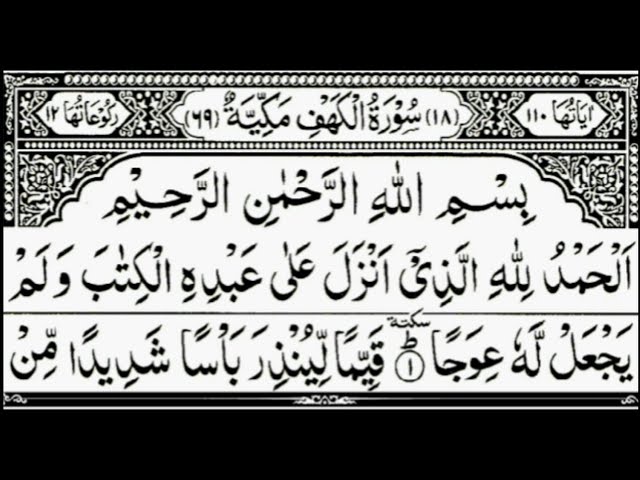 اٰيَاتُهَا ١١٠ (١٨) سُوْرَةُ الْكَهْفِ مَكِّيَّةٌ (٦٩) رُكُوْعَاتُهَا ١٢
بِسْمِ اللّٰهِ الرَّحْمٰنِ الرَّحِيْمِ
اَلْحَمْدُ لِلّٰهِ الَّذِيْٓ اَنْزَلَ عَلٰى عَبْدِهِ الْكِتٰبَ وَلَمْ
يَجْعَلْ لَّهٗ عِوَجًا ؕ سكتة ١ قَيِّمًا لِّيُنْذِرَ بَاْسًا شَدِيْدًا مِّنْ